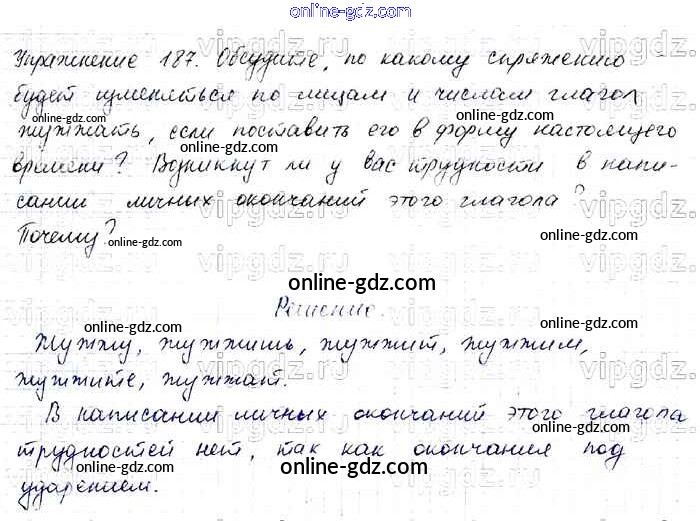 online-gdz.com
Упражнение 187. Обсудите, по какому спряжению
будет изменяться по лицам и числам глагол
жужжать, если поставить его в форму настоящего
времени? Возникнут ли у вас трудности в напи-
сании личных окончаний этого глагола?
Почему?
Решение.
Жужжу, жужжишь, жужжит, жужжим,
жужжите, жужжат.
В написании личных окончаний этого глагола
трудностей нет, так как окончания под
ударением.
online-gdz.com
online-gdz.com
online-gdz.com
online-gdz.com
online-gdz.com
online-gdz.com
online-gdz.com
online-gdz.com
online-gdz.com
online-gdz.com
online-gdz.com
online-gdz.com